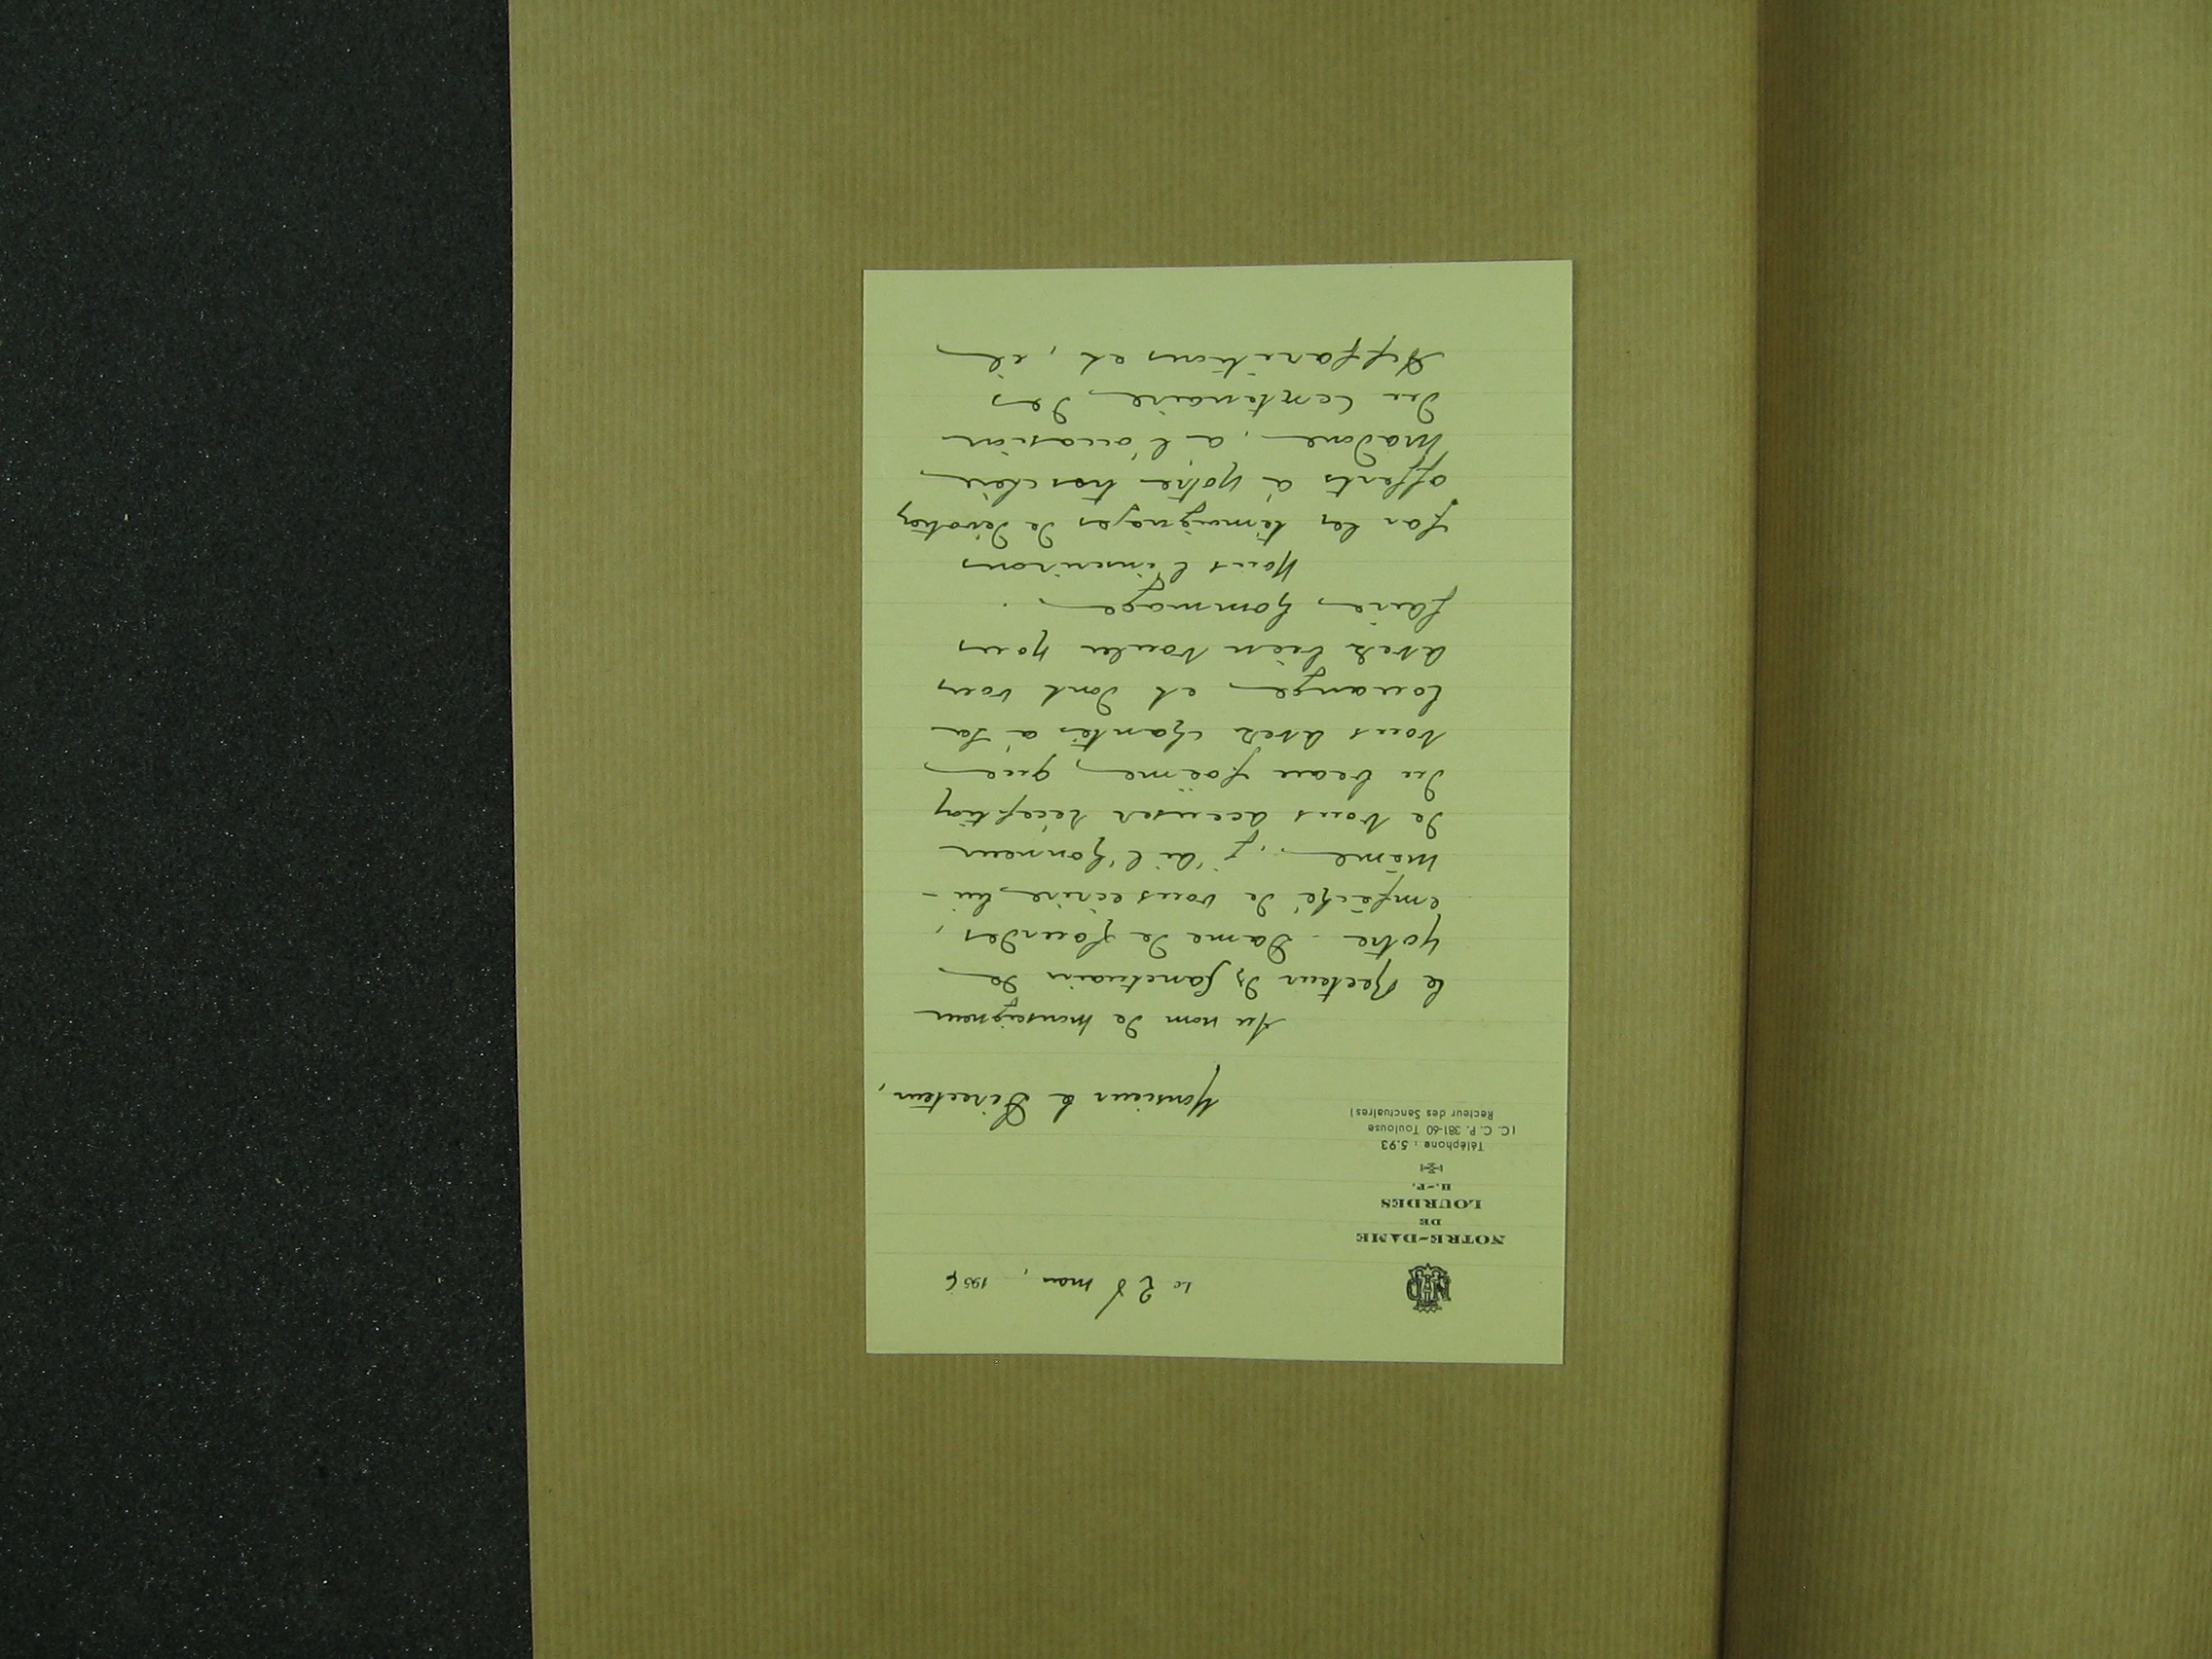 NOTRE-DAME
DE
LOURDES
H.-P.
Téléphone : 5.93
(C. C. P. 381-60 Toulouse
Recteur des Sanctuaires)
Le 28 mars, 195
Monsieur le Directeur,
Au nom de Monseigneur
le Recteur des Sanctuaires de
Notre-Dame de Lourdes,
empêché de vous écrire lui-
même, j'ai l'honneur
de vous accuser réception
du beau poème, que
vous avez chanté à sa
louange et dont vous
avez bien voulu nous
faire hommage.
Nous l'inscrirons
par les témoignages de dévotion
offerts à notre très chère
Madone, à l'occasion
du Centenaire des
Apparitions et, il